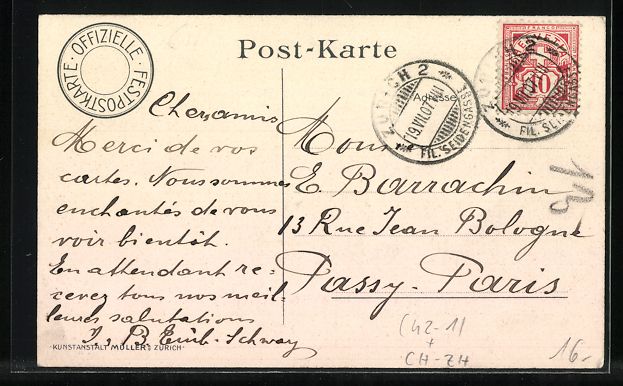 · OFFIZIELLE · FESTPOSTKARTE
Post-Karte
Adresse
ZÜRICH 2
19.VII.07
FIL. SEIDENGASSE
FRANCO
10
Cher amis
Merci de vos
cartes. Nous sommes
enchantés de vous
voir bientôt.
En attendant re-
cevez tous nos meil-
leures salutations
Mons
E. Barrachin
13 Rue Jean Bologne
Passy-Paris
KUNSTANSTALT MÜLLER & ZÜRICH
CH-ZH
16.-